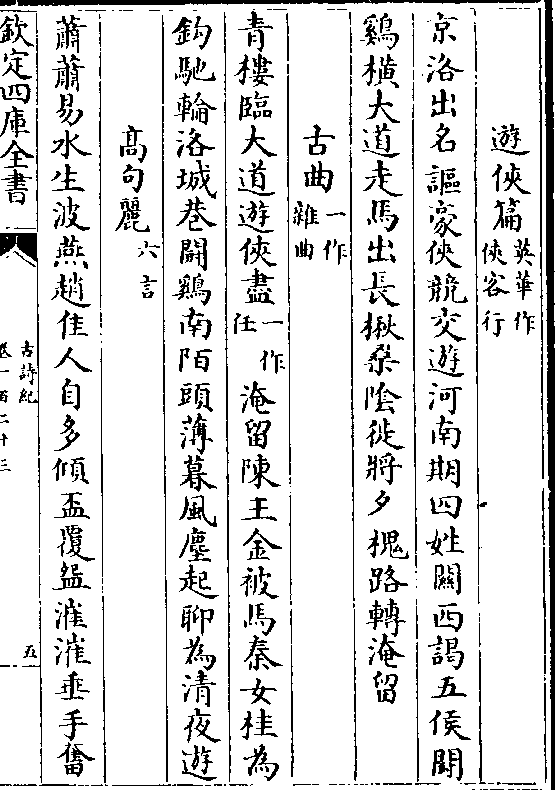 遊俠篇英華作俠客行
京洛出名謳豪俠競交遊河南期四姓關西謁五侯鬭
鷄橫大道走馬出長楸桑陰徙將夕槐路轉淹留
古曲一作雜曲
青樓臨大道遊俠盡一作任淹留陳王金被馬秦女桂為
鈎馳輪洛城巷鬭鷄南陌頭薄暮風塵起聊為清夜遊
高句麗六言
蕭蕭易水生波燕趙佳人自多傾盃覆㿻漼漼垂手奮
欽定四庫全書
古詩紀
卷一百二十三
五